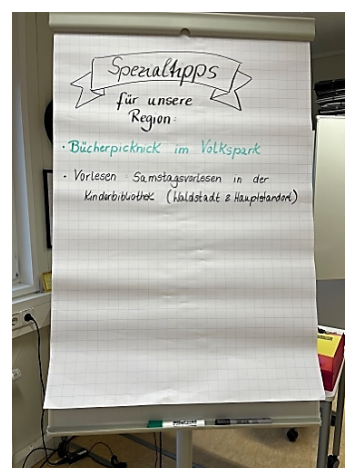 Spezialtipps
für unsere
Region:
· Bücherpicknick im Volkspark
· Vorlesen Samstagsvorlesen in der
Kinderbibliothek (Waldstadt & Hauptstandort)